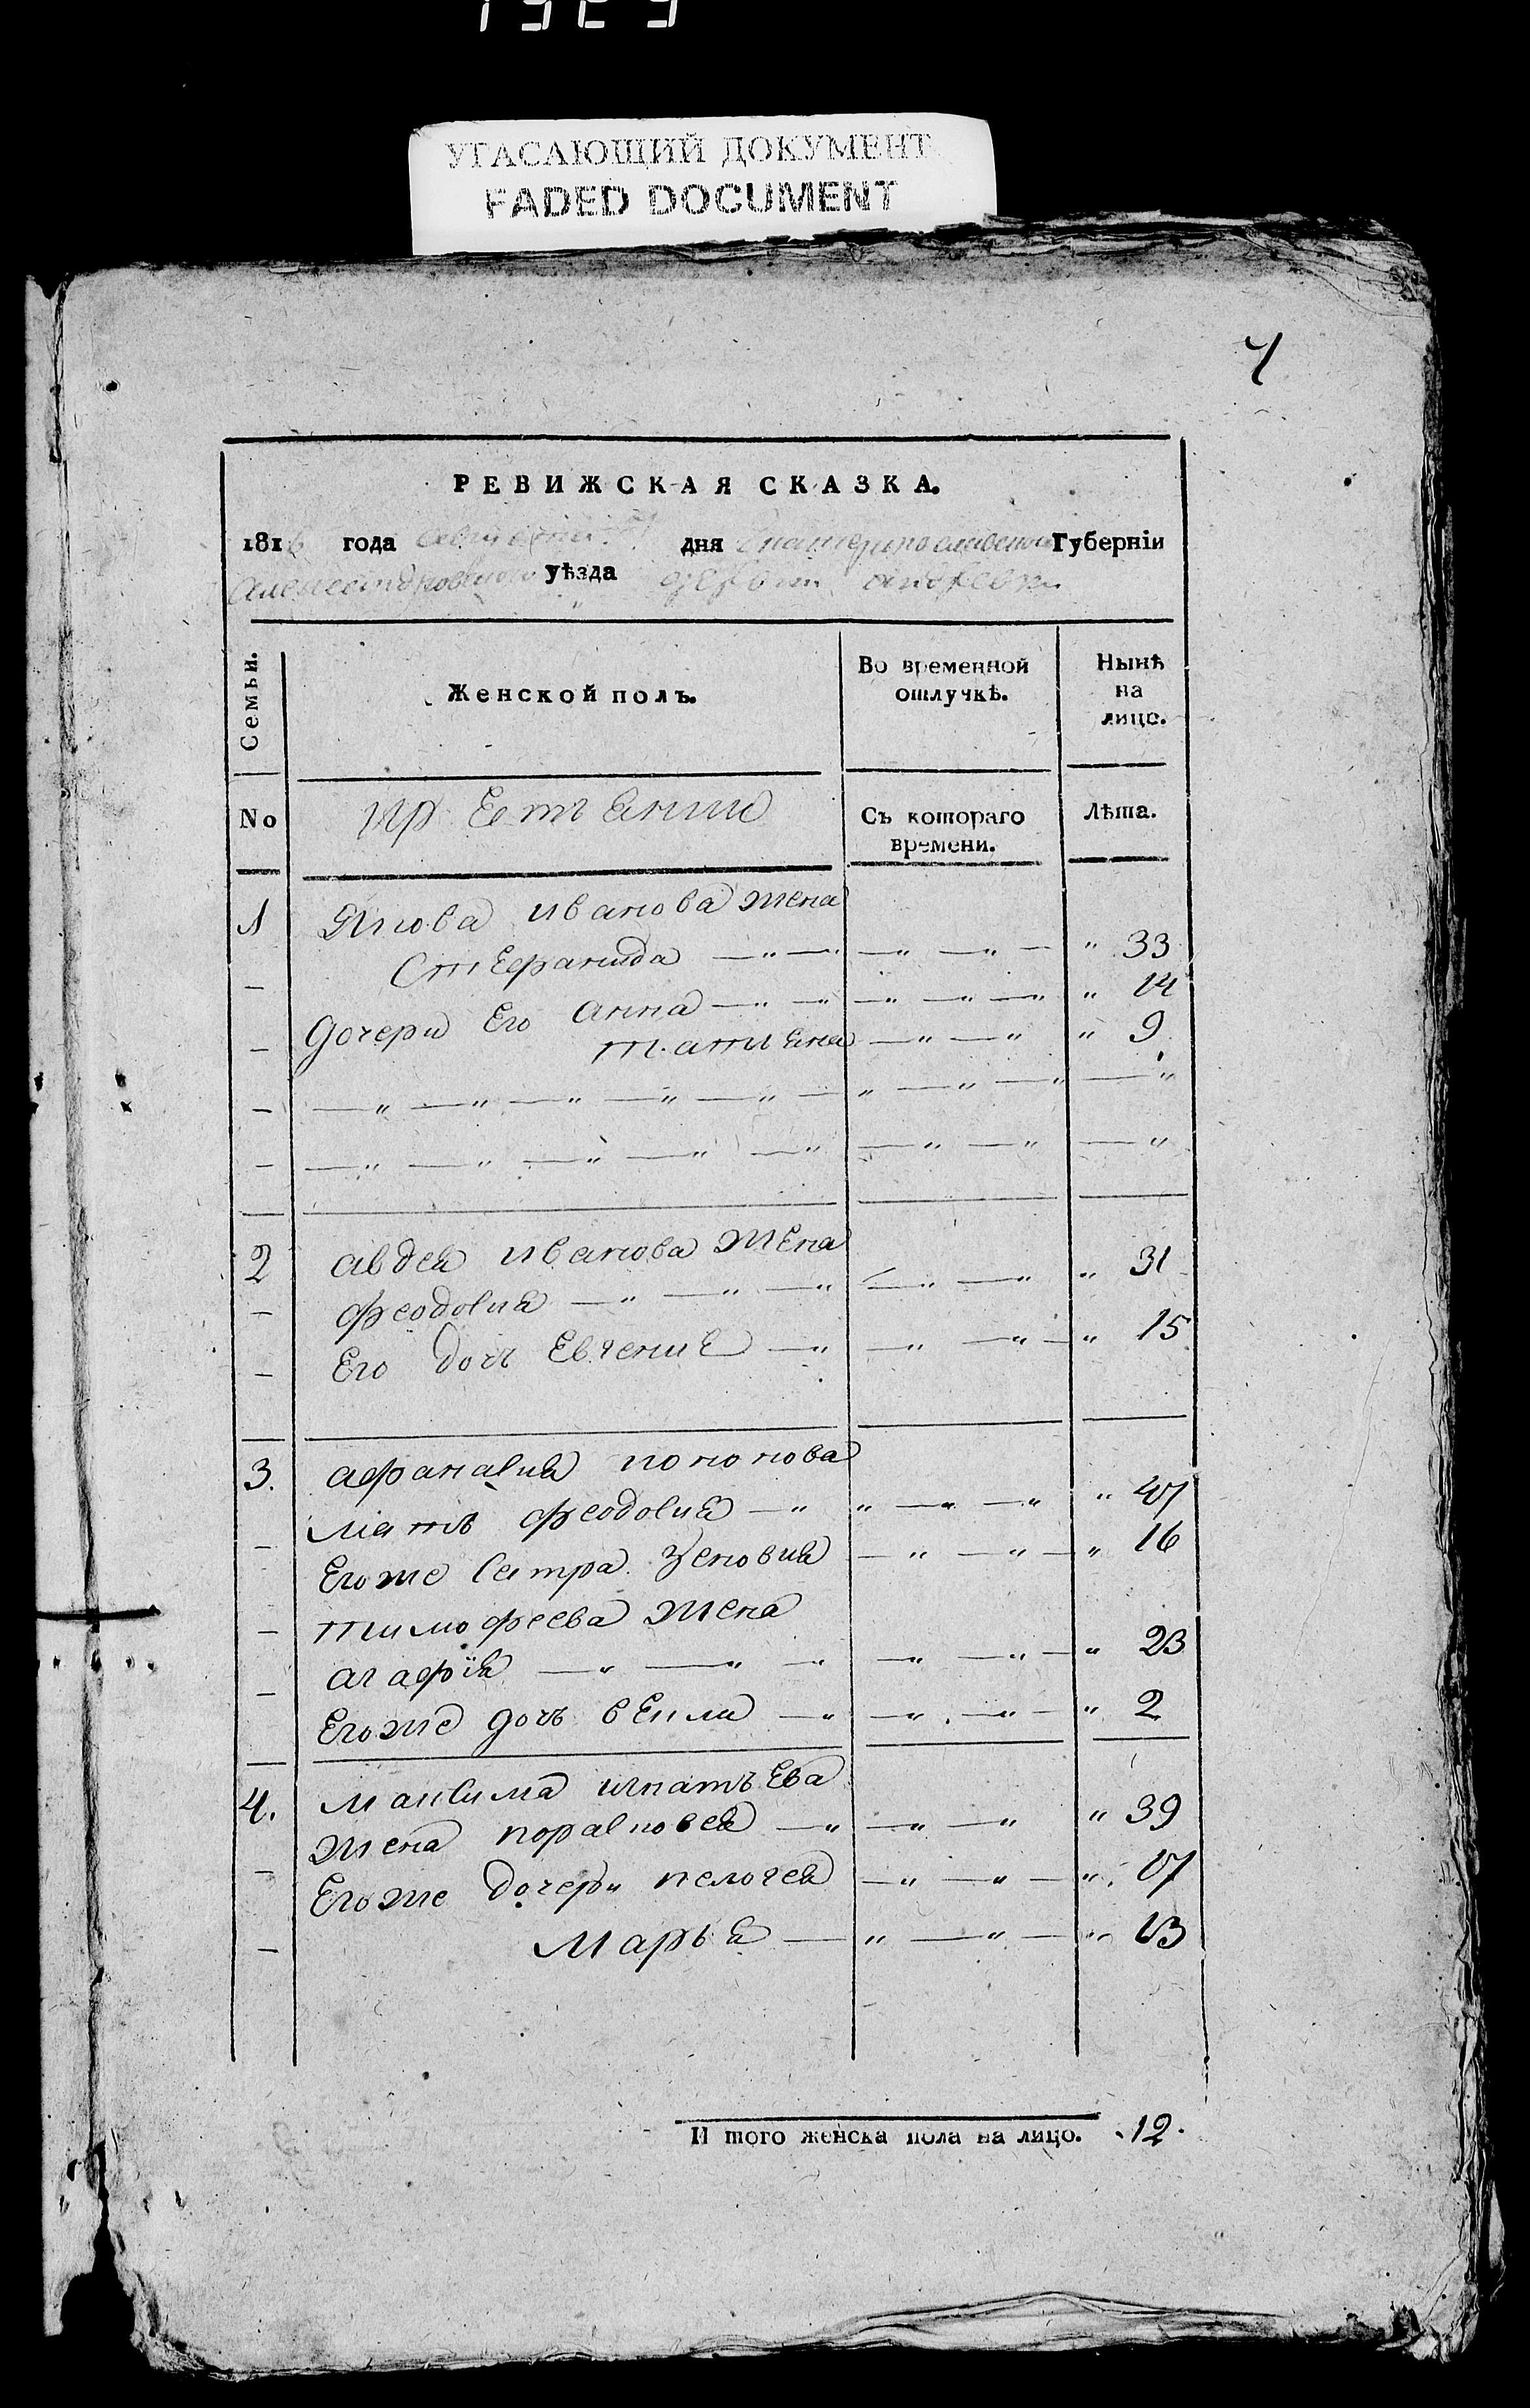 УГАСАЮЩИЙ ДОКУМЕНТ
FADED DOCUMENT
РЕВИЖСКАЯ СКАЗКА.
1816 года дня Екатеринославской Губернiи
Александровского уѣзда
Семьи.
Женской полъ.
Во временной отлучкѣ.
Нынѣ на лицо.
No
Крестьянии
Съ котораго времени.
Лѣта.
1 Якова иванова жена
Стефанида 33
Дочери Его анна 14
татияна 9
2 авдея иванова жена
феодосия 31
Его дочь Евгения 15
3. афанасия кононова
мать феодосия 47
Егоже Сестра Зеновия 16
тимофеева жена
агафiя 23
Егоже дочь 2
4. максима игнатьева
жена 39
Егоже дочери пелагея 17
Марья 13
И того женска пола на лицо. 12.